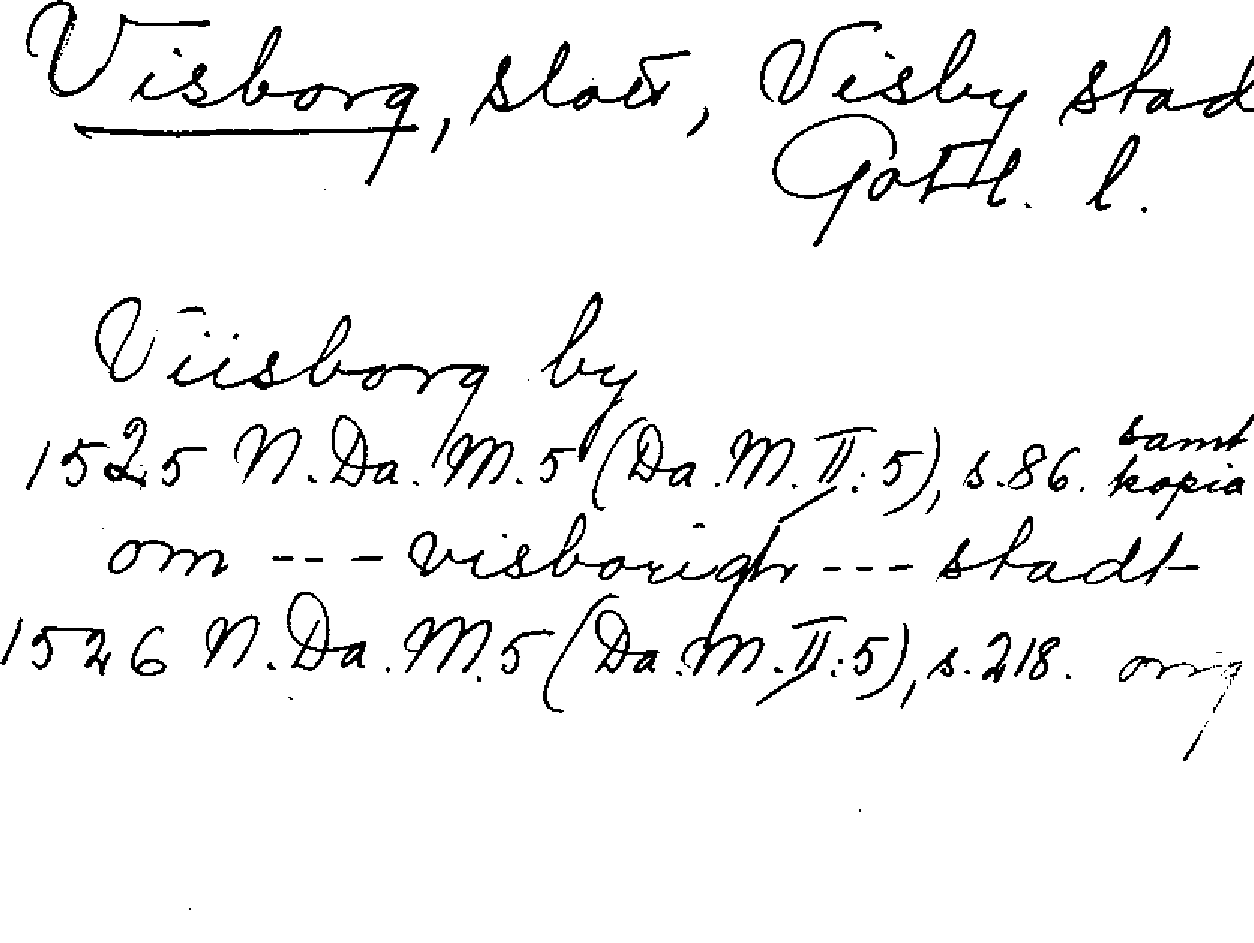 Visborg, slott, Visby stad
Gotl. l.
Viisborg by
1525 N. Da. M. 5 (Da. M. II: 5), s. 86. samt kopia
om --- visborigh --- stadt
1526 N. Da. M. 5 (Da. M. II: 5), s. 218. orig